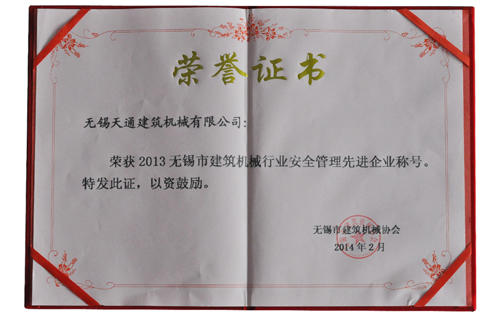 荣誉证书
无锡天通建筑机械有限公司:
荣获2013无锡市建筑机械行业安全管理先进企业称号。
特发此证，以资鼓励。
无锡市建筑机械协会
2014年2月